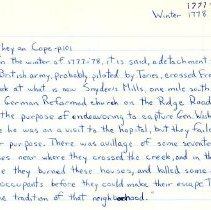 1777-
Winter 1778
they on Cope-p101
n the winter of 1777-78, it is said, a detachment
British army, probably piloted by Tories, crossed Fre
ek at what is now Snyder's Mills, one mile south
German Reformed church on the Ridge Road
the purpose of endeavoring to capture Gen. Wash
e he was on a visit to the hospital, but they faile
r purpose. There was a village of some sevente
ses near where they crossed the creek, and in th
e they burned these houses, and killed some
occupants before they could make their escape. T
he tradition of that neighborhood.